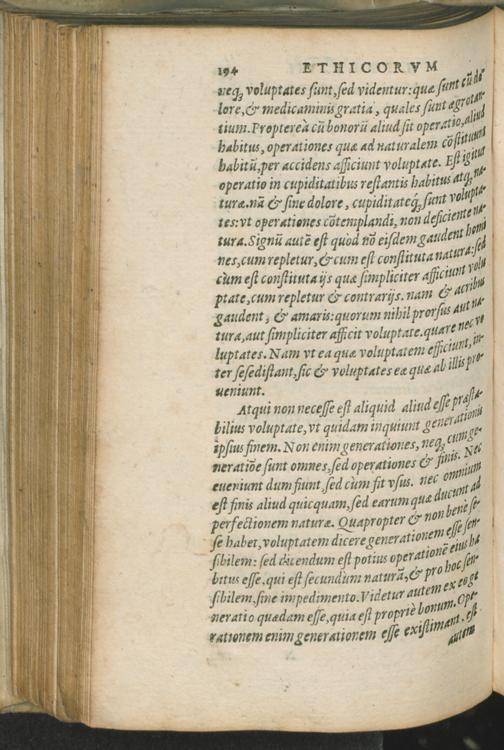 194 ETHICORVM
neq; voluptates sunt, sed videntur: quæ sunt cū do-
lore, & medicaminis gratia, quales sunt ægrotan-
tium. Propterea cū bonorū aliud sit operatio, aliud
habitus, operationes quæ ad naturalem cōstituunt
habitū, per accidens afficiunt voluptate. Est igitur
operatio in cupiditatibus restantis habitus atq; na-
turæ. nā & sine dolore, cupiditateq́; sunt volupta-
tes: vt operationes cōtemplandi, non deficiente na-
tura. Signū autē est quòd nō eisdem gaudent homi
nes, cum repletur, & cum est constituta natura: sed
cùm est constituta ijs quæ simpliciter afficiunt volu
ptate, cum repletur & contrarijs. nam & acribus
gaudent, & amaris: quorum nihil prorsus aut na-
tura, aut simpliciter afficit voluptate. quare nec vo
luptates. Nam vt ea quæ voluptatem efficiunt, in-
ter sese distant, sic & voluptates eæ quæ ab illis pro-
ueniunt.
Atqui non necesse est aliquid aliud esse præsta-
bilius voluptate, vt quidam inquiunt generationis
ipsius finem. Non enim generationes, neq; cum ge-
neratiōe sunt omnes, sed operationes & finis. Nec
eueniunt dum fiunt, sed cùm fit vsus. nec omnium
est finis aliud quicquam, sed earum quæ ducunt ad
perfectionem naturæ. Quapropter & non benè se-
se habet, voluptatem dicere generationem esse sen-
sibilem: sed dicendum est potius operationē eius ha
bitus esse, qui est secundùm naturā, & pro hoc sen-
sibilem, sine impedimento. Videtur autem ex eo ge
neratio quædam esse, quia est propriè bonum. Ope-
rationem enim generationem esse existimant. est
autem